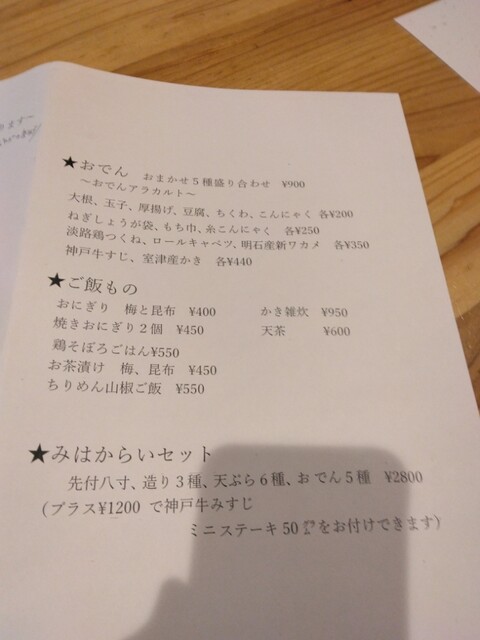 ★おでん　おまかせ5種盛り合わせ　¥900
～おでんアラカルト～
大根、玉子、厚揚げ、豆腐、ちくわ、こんにゃく 各¥200
ねぎしょうが袋、もち巾、糸こんにゃく　各¥250
淡路鶏つくね、ロールキャベツ、明石産新ワカメ　各¥350
神戸牛すじ、室津産かき　各¥440
★ご飯もの
おにぎり　梅と昆布　¥400　　かき雑炊　¥950
焼きおにぎり2個　¥450　　天茶　¥600
鶏そぼろごはん¥550
お茶漬け　梅、昆布　¥450
ちりめん山椒ご飯　¥550
★みはからいセット
先付八寸、造り3種、天ぷら6種、おでん5種　¥2800
(プラス¥1200 で神戸牛みすじ
ミニステーキ50㌘をお付けできます)